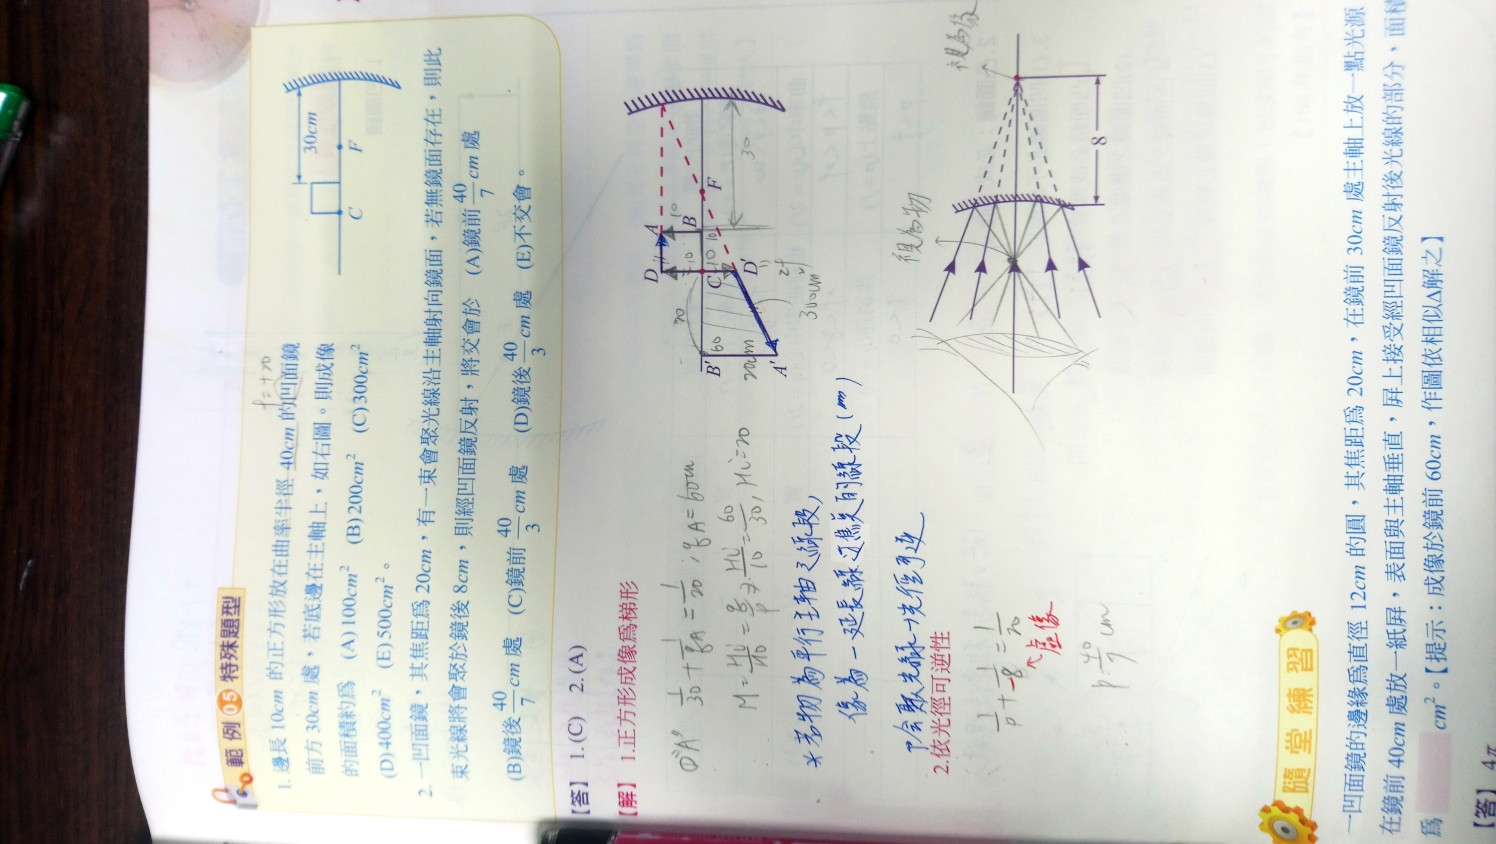 範例 05 特殊題型
f=+20
1. 邊長 10cm 的正方形放在曲率半徑 40cm 的凹面鏡
前方 30cm 處，若底邊在主軸上，如右圖。則成像
的面積約為 (A)100cm² (B)200cm² (C)300cm²
(D)400cm² (E)500cm²。
30cm
C F
2. 一凹面鏡，其焦距為 20cm，有一束會聚光線沿主軸射向鏡面，若無鏡面存在，則此
束光線將會聚於鏡後 8cm，則經凹面鏡反射，將交會於 (A)鏡前 40/7 cm 處
(B)鏡後 40/7 cm 處 (C)鏡前 40/3 cm 處 (D)鏡後 40/3 cm 處 (E)不交會。
【答】 1.(C) 2.(A)
【解】 1.正方形成像為梯形
1/30 + 1/qA = 1/20 , qA = 60cm
M = Hi/Ho = q/p ⇒ Hi/10 = 60/30 , Hi = 20
*若物為平行主軸之線段,
像為一延長線過焦點的線段
D A
10
10
B
C F
10
30
D'
B' 60
20cm
A'
300cm
2.依光徑可逆性
1/p + 1/-8 = 1/20
虛像
p = 40/7 cm
視為物
視為像
8
隨堂練習
一凹面鏡的邊緣為直徑 12cm 的圓，其焦距為 20cm，在鏡前 30cm 處主軸上放一點光源
在鏡前 40cm 處放一紙屏，表面與主軸垂直，屏上接受經凹面鏡反射後光線的部分，面積
為 cm²。【提示：成像於鏡前 60cm，作圖依相似△解之】
【答】 4π